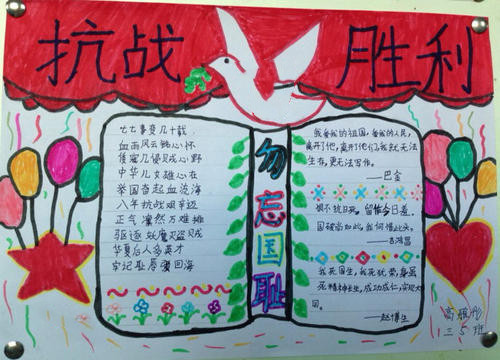 抗战 胜利
七七事变几十载,
血雨风云铭心怀
中华儿女雄心在
举国奋起血流海
八年抗战艰辛迈
正气凛然万难推
驱逐妖魔灭盗贼
华夏后人多英才
牢记耻辱
勿忘国耻
我爱我的祖国,爱我的人民,
离开了他,离开了他们我就无法
生存,更无法写作。
——巴金
恨不抗日死,留作今日羞。
国破尚如此,我何惜此头。
——吉鸿昌
我死国生,我死犹荣,身虽
死精神长生,成功成仁,实现大
同。
——赵博生
高雅彤
三5班